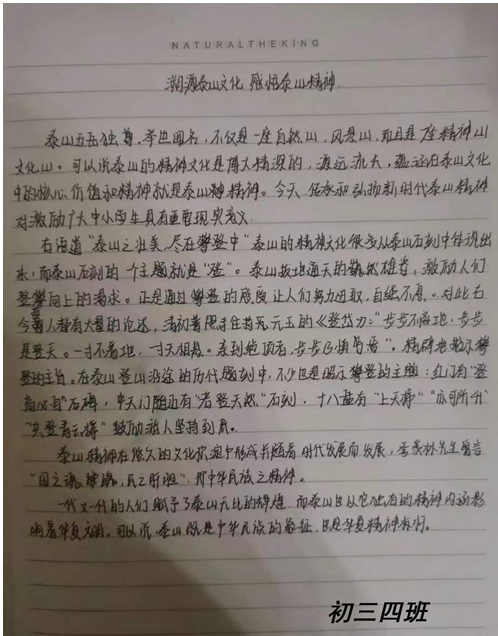 NATURALTHEKING
溯源泰山文化 感悟泰山精神.
泰山五岳独尊,举世闻名,不仅是一座自然山,风景山,而且是一座精神山
文化山。可以说泰山的精神文化是博大精深的,源远流长,蕴涵在泰山文化
中的核心价值和精神就是泰山精神。今天,传承和弘扬新时代泰山精神
对激励广大中小学生具有重要现实意义
有道道"泰山之壮美,尽在攀登中"泰山的精神文化很多从泰山石刻中传说出
来,而泰山石刻的一个主题就是"登"。泰山拔地通天的雄姿,激励人们
登攀向上的渴求。正是通过攀登的感度让人们努力进取,自强不息。对此古
今人都有大量的论述,清初元玉的《登岱》:"步步不离地,步步
是登天。一寸不着地,一寸天相悬。亲到绝顶者,步步必须句语"。精辟地揭示攀
登的主旨。在泰山登山沿途的历代题刻中,不少也是昭示攀登的主题:红门有"登
高必自"石碑,中天门附近有"若登天然"石刻,十八盘有"上天梯""亦可阶升"
"共登青云梯"鼓励人坚持到底。
泰山精神在悠久的文化长河中形成并随着时代发展而发展,季羡林先生曾言
"国之魂,民之肝胆",即中华民族之精神。
一代又一代的人们赋予了泰山无比的辉煌 而泰山且以它独有的精神内涵影
响着华夏文明。可以说,泰山既是中华民族的象征,且是华夏精神
初三四班